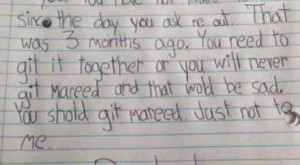 since the day you ask me out. That
was 3 months ago. You need to
git it together or you will never
git mareed and that wold be sad.
You shold git mareed. Just not to
me.